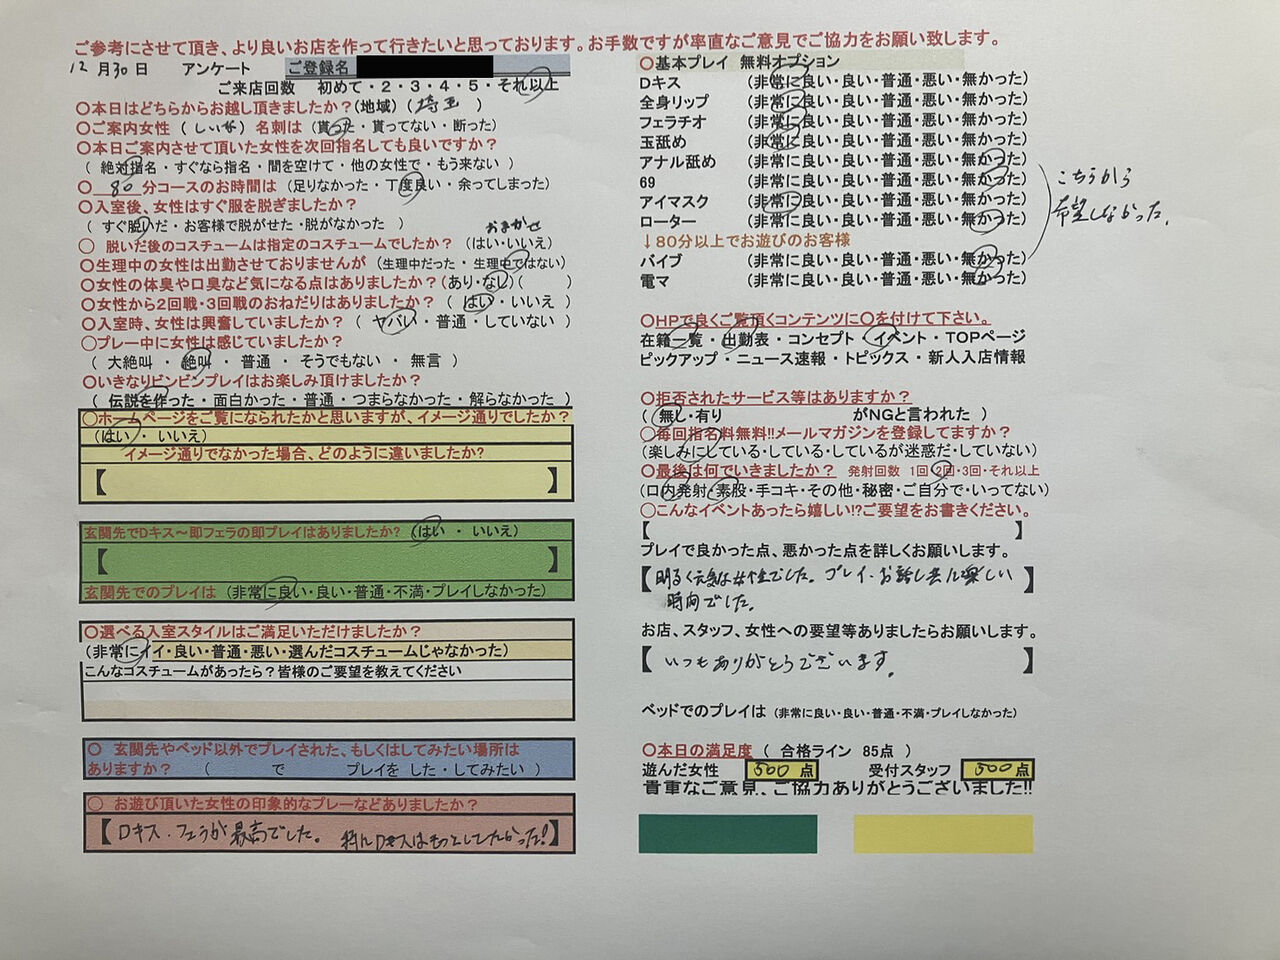 ご参考にさせて頂き、より良いお店を作って行きたいと思っております。お手数ですが率直なご意見でご協力をお願い致します。
12月30日 アンケート ご登録名
ご来店回数 初めて・2・3・4・5・それ以上
〇本日はどちらからお越し頂きましたか?(地域)(埼玉)
〇ご案内女性(しいな)名刺は(貰った・貰ってない・断った)
〇本日ご案内させて頂いた女性を次回指名しても良いですか?
(絶対指名・すぐなら指名・間を空けて・他の女性で・もう来ない)
〇80分コースのお時間は(足りなかった・丁度良い・余ってしまった)
〇入室後、女性はすぐ服を脱ぎましたか?
(すぐ脱いだ・お客様で脱がせた・脱がなかった)
おまかせ
〇 脱いだ後のコスチュームは指定のコスチュームでしたか?(はい・いいえ)
〇生理中の女性は出勤させておりませんが(生理中だった・生理中ではない)
〇女性の体臭や口臭など気になる点はありましたか?(あり・なし)( )
〇女性から2回戦・3回戦のおねだりはありましたか?(はい・いいえ)
〇入室時、女性は興奮していましたか?(ヤバい・普通・していない)
〇プレー中に女性は感じていましたか?
(大絶叫・絶叫・普通・そうでもない・無言)
〇いきなりビンビンプレイはお楽しみ頂けましたか?
(伝説を作った・面白かった・普通・つまらなかった・解らなかった)
〇ホームページをご覧になられたかと思いますが、イメージ通りでしたか?
(はい・いいえ)
イメージ通りでなかった場合、どのように違いましたか?
【 】
玄関先でDキス~即フェラの即プレイはありましたか?(はい・いいえ)
【 】
玄関先でのプレイは(非常に良い・良い・普通・不満・プレイしなかった)
〇選べる入室スタイルはご満足いただけましたか?
(非常にイイ・良い・普通・悪い・選んだコスチュームじゃなかった)
こんなコスチュームがあったら?皆様のご要望を教えてください
〇 玄関先やベッド以外でプレイされた、もしくはしてみたい場所は
ありますか?( で プレイを した・してみたい )
〇 お遊び頂いた女性の印象的なプレーなどありましたか?
【Dキス・フェラが最高でした。 特にDキスはもっとしてたかった!】
〇基本プレイ 無料オプション
Dキス (非常に良い・良い・普通・悪い・無かった)
全身リップ (非常に良い・良い・普通・悪い・無かった)
フェラチオ (非常に良い・良い・普通・悪い・無かった)
玉舐め (非常に良い・良い・普通・悪い・無かった)
アナル舐め (非常に良い・良い・普通・悪い・無かった)
69 (非常に良い・良い・普通・悪い・無かった)
アイマスク (非常に良い・良い・普通・悪い・無かった)
ローター (非常に良い・良い・普通・悪い・無かった)
こちらから
希望しなかった。
↓80分以上でお遊びのお客様
バイブ (非常に良い・良い・普通・悪い・無かった)
電マ (非常に良い・良い・普通・悪い・無かった)
〇HPで良くご覧頂くコンテンツに〇を付けて下さい。
在籍一覧・出勤表・コンセプト・イベント・TOPページ
ピックアップ・ニュース速報・トピックス・新人入店情報
〇拒否されたサービス等はありますか?
(無し・有り がNGと言われた)
〇毎回指名料無料!!メールマガジンを登録してますか?
(楽しみにしている・している・しているが迷惑だ・していない)
〇最後は何でいきましたか? 発射回数 1回・2回・3回・それ以上
(口内発射・素股・手コキ・その他・秘密・ご自分で・いってない)
〇こんなイベントあったら嬉しい!?ご要望をお書きください。
【 】
プレイで良かった点、悪かった点を詳しくお願いします。
【明るく元気な女性でした。プレイ・お話し共に楽しい
時間でした。】
お店、スタッフ、女性への要望等ありましたらお願いします。
【いつもありがとうございます。】
ベッドでのプレイは(非常に良い・良い・普通・不満・プレイしなかった)
〇本日の満足度(合格ライン 85点)
遊んだ女性 500点 受付スタッフ 500点
貴重なご意見、ご協力ありがとうございました!!